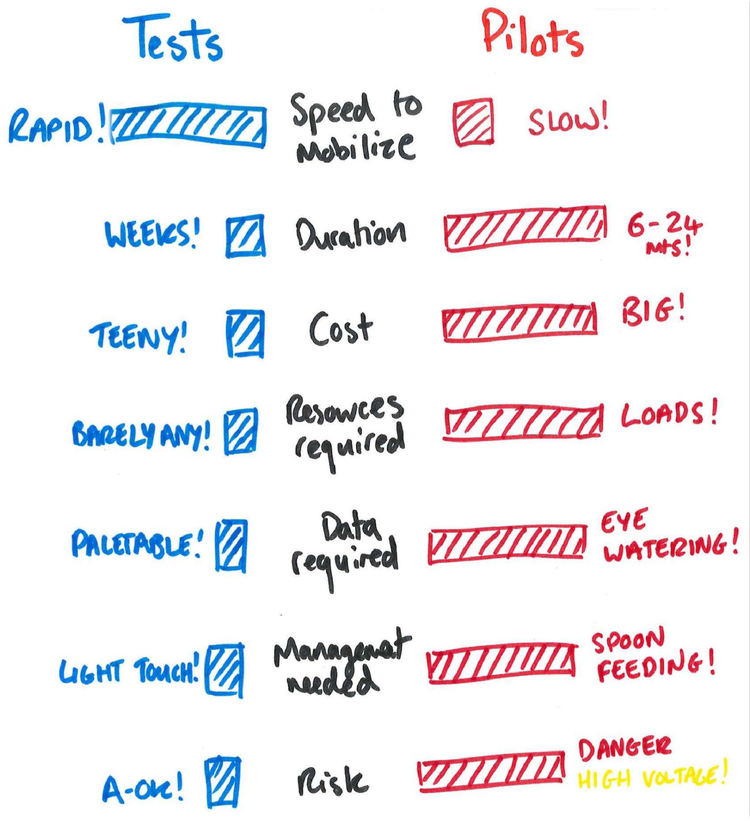 Tests Pilots
RAPID! Speed to SLOW!
Mobilize
WEEKS! Duration 6-24
mts!
TEENY! Cost BIG!
BARELY ANY! Resources LOADS!
required
PALETABLE! Data EYE
required WATERING!
LIGHT TOUCH! Management SPOON
needed FEEDING!
A-OK! Risk DANGER
HIGH VOLTAGE!